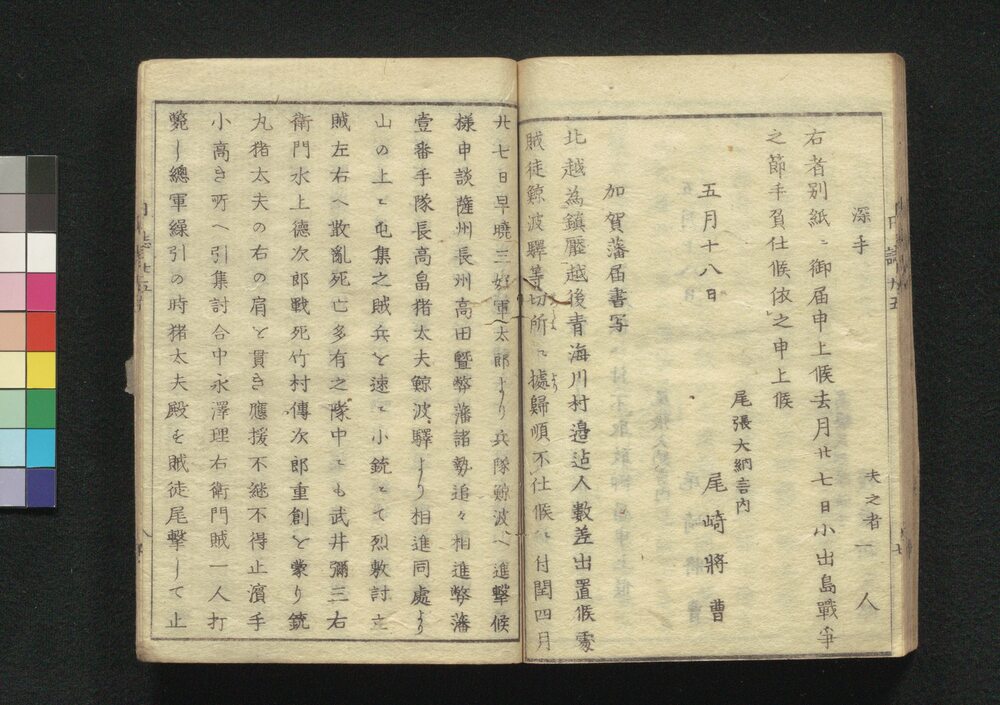 夫之者一人
深手
右者別紙ニ御届申上候去月廿七日小出島戰爭
之節手負仕候依之申上候
尾張大納言內
尾崎將曹
五月十八日
加賀藩届書写
北越為鎮壓越後青海川村邉迠人數差出置候處
賊徒鯨波驛等切所ニ據歸順不仕候ニ付閏四月
廿七日早曉三好軍太郎より兵隊鯨波へ進撃候
様申談薩州長州高田曁弊藩諸勢追々相進弊藩
壹番手隊長高畠猪太夫鯨波驛より相進同處より
山の上ニ屯集之賊兵を速ニ小銃とて烈敷討立
賊左右へ散亂死亡多有之隊中ニも武井彌三右
衛門水上德次郎戰死竹村傳次郎重創を蒙り銃
丸猪太夫の右の肩を貫き應援不継不得止濱手
小高き所へ引集討合中永澤理右衛門賊一人打
斃し總軍繰引の時猪太夫殿を賊徒尾撃して止